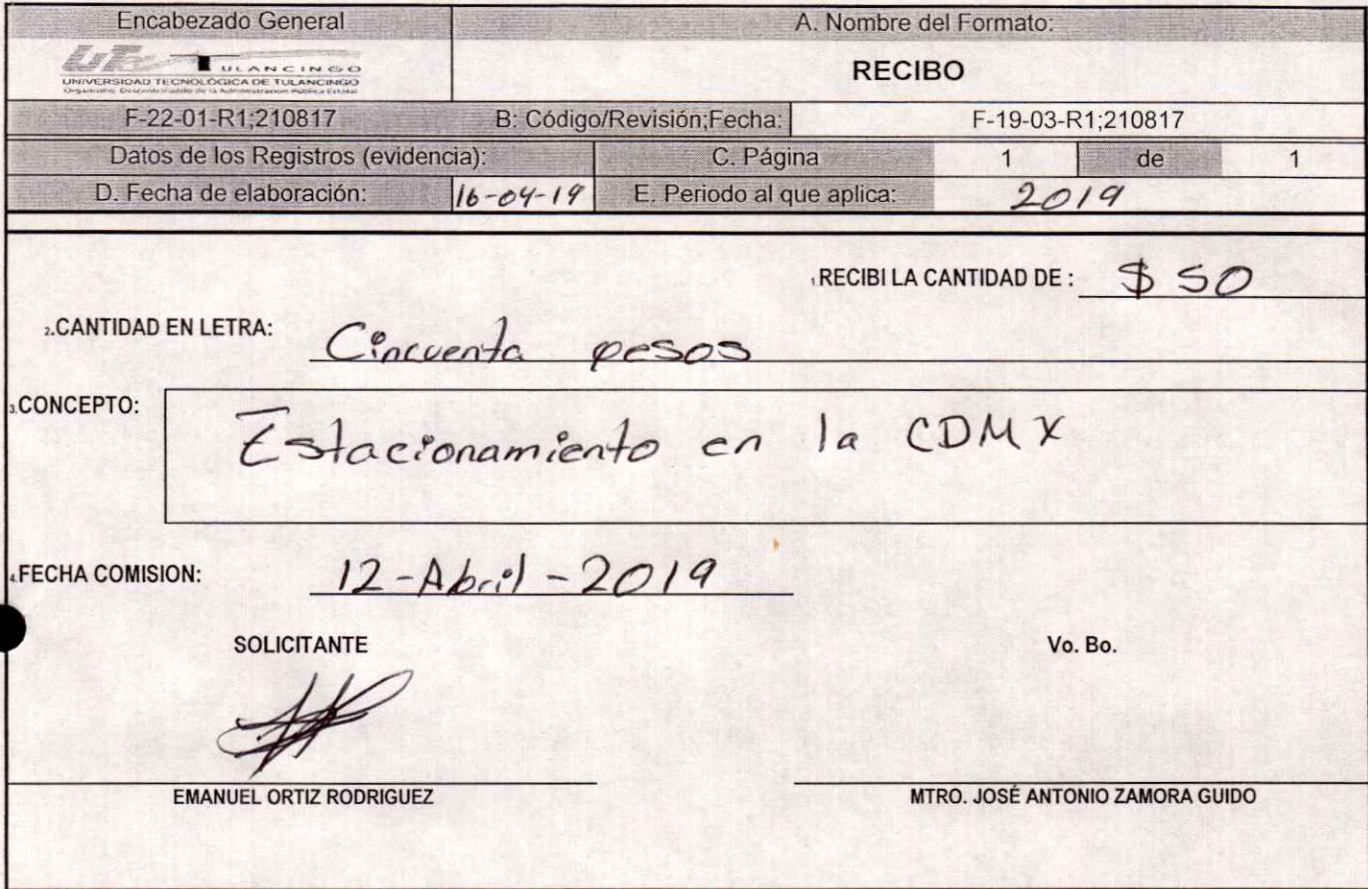 Encabezado General
A. Nombre del Formato:
UTec TULANCINGO
UNIVERSIDAD TECNOLÓGICA DE TULANCINGO
Organismo Descentralizado de la Administración Pública Estatal
RECIBO
F-22-01-R1;210817 B: Código/Revisión;Fecha: F-19-03-R1;210817
Datos de los Registros (evidencia): C. Página 1 de 1
D. Fecha de elaboración: 16-04-19 E. Periodo al que aplica: 2019
1.RECIBI LA CANTIDAD DE : $ 50
2.CANTIDAD EN LETRA: Cincuenta pesos
3.CONCEPTO: Estacionamiento en la CDMX
4.FECHA COMISION: 12-Abril-2019
SOLICITANTE Vo. Bo.
EMANUEL ORTIZ RODRIGUEZ MTRO. JOSÉ ANTONIO ZAMORA GUIDO